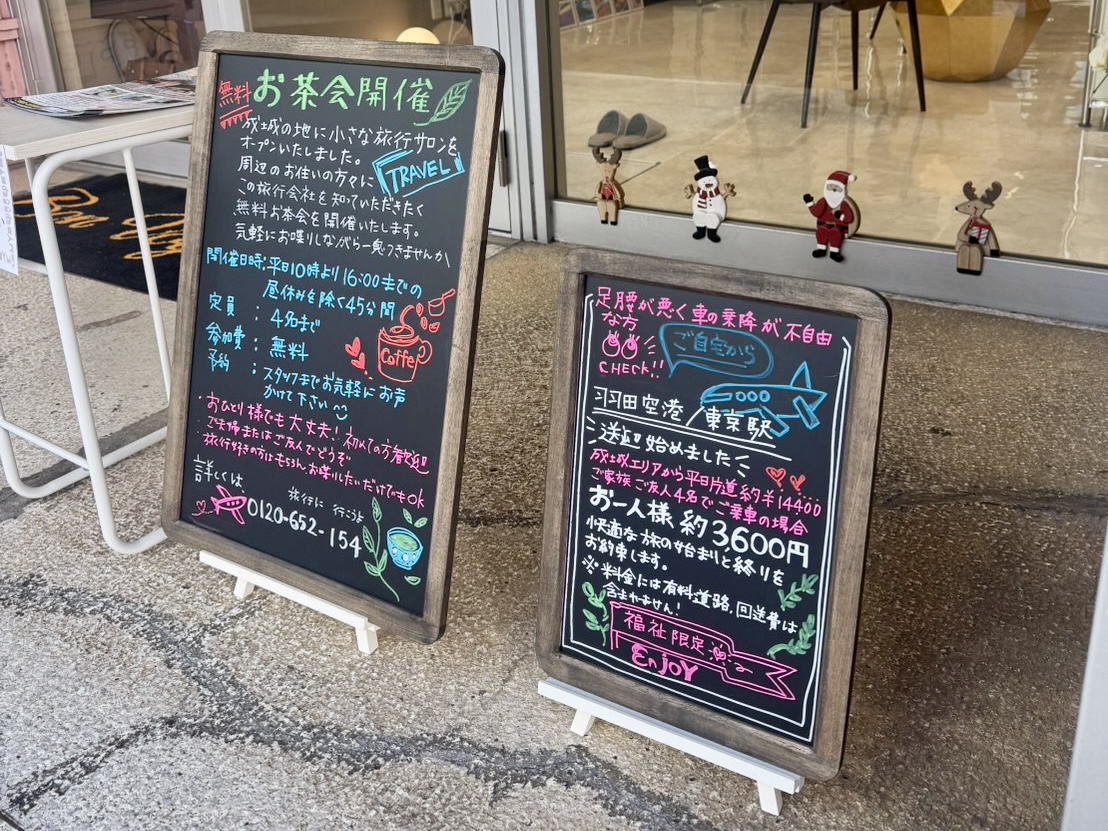 無料 お茶会開催
成城の地に小さな旅行サロンを
オープンいたしました。
周辺のお住いの方々に
TRAVEL
この旅行会社を知っていただきたく
無料お茶会を開催いたします。
気軽にお喋りしながら一息つきませんか
開催日時:平日10時より16:00までの
昼休みを除く45分間
定員 : 4名まで
参加費 : 無料
予約 : スタッフまでお気軽にお声
かけて下さい
Coffee
・おひとり様でも大丈夫!初めての方歓迎
・ご夫婦またはご友人でどうぞ
・旅行好きの方はもちろん、お喋りしたいだけでもOK
詳しくは
旅行に行こうよ
0120-652-154
足腰が悪く車の乗降が不自由
な方
CHECK!!
ご自宅から
羽田空港/東京駅
送迎始めました
成城エリアから平日片道約¥14400
ご家族ご友人4名でご乗車の場合
お一人様 約3600円
快適な旅の始まりと終りを
お約束します。
※料金には有料道路,回送費は
含まれません!
福祉限定
Enjoy